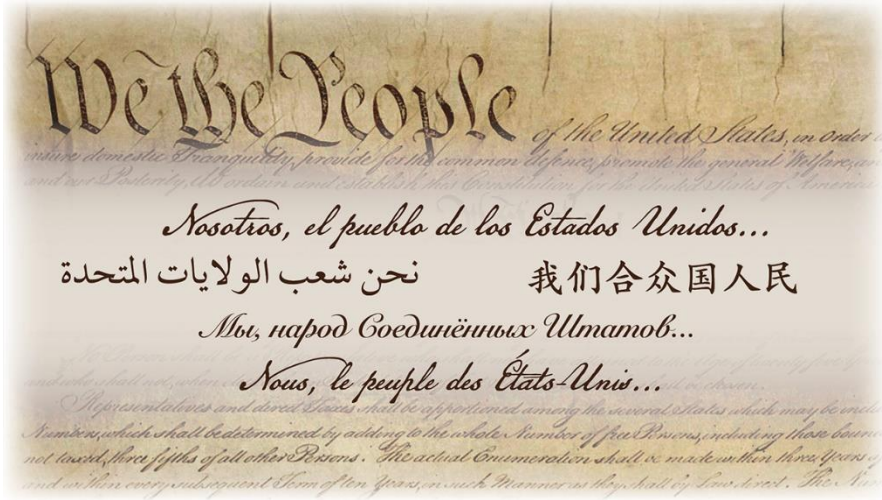 We the People of the United States, in order
insure domestic Tranquility, provide for the common defence, promote the general Welfare, an
and our Posterity, do ordain and establish this Constitution for the United States of America
Nosotros, el pueblo de los Estados Unidos...
نحن شعب الولايات المتحدة
我们合众国人民
Мы, народ Соединённых Штатов...
Nous, le peuple des États-Unis...
Representatives and direct Taxes shall be apportioned among the several States which may be inclu
Numbers, which shall be determined by adding to the whole Number of free Persons, including those boun
not taxed, three fifths of all other Persons. The actual Enumeration shall be made within three Years
and within every subsequent Term of ten Years, in such Manner as they shall by Law direct. The